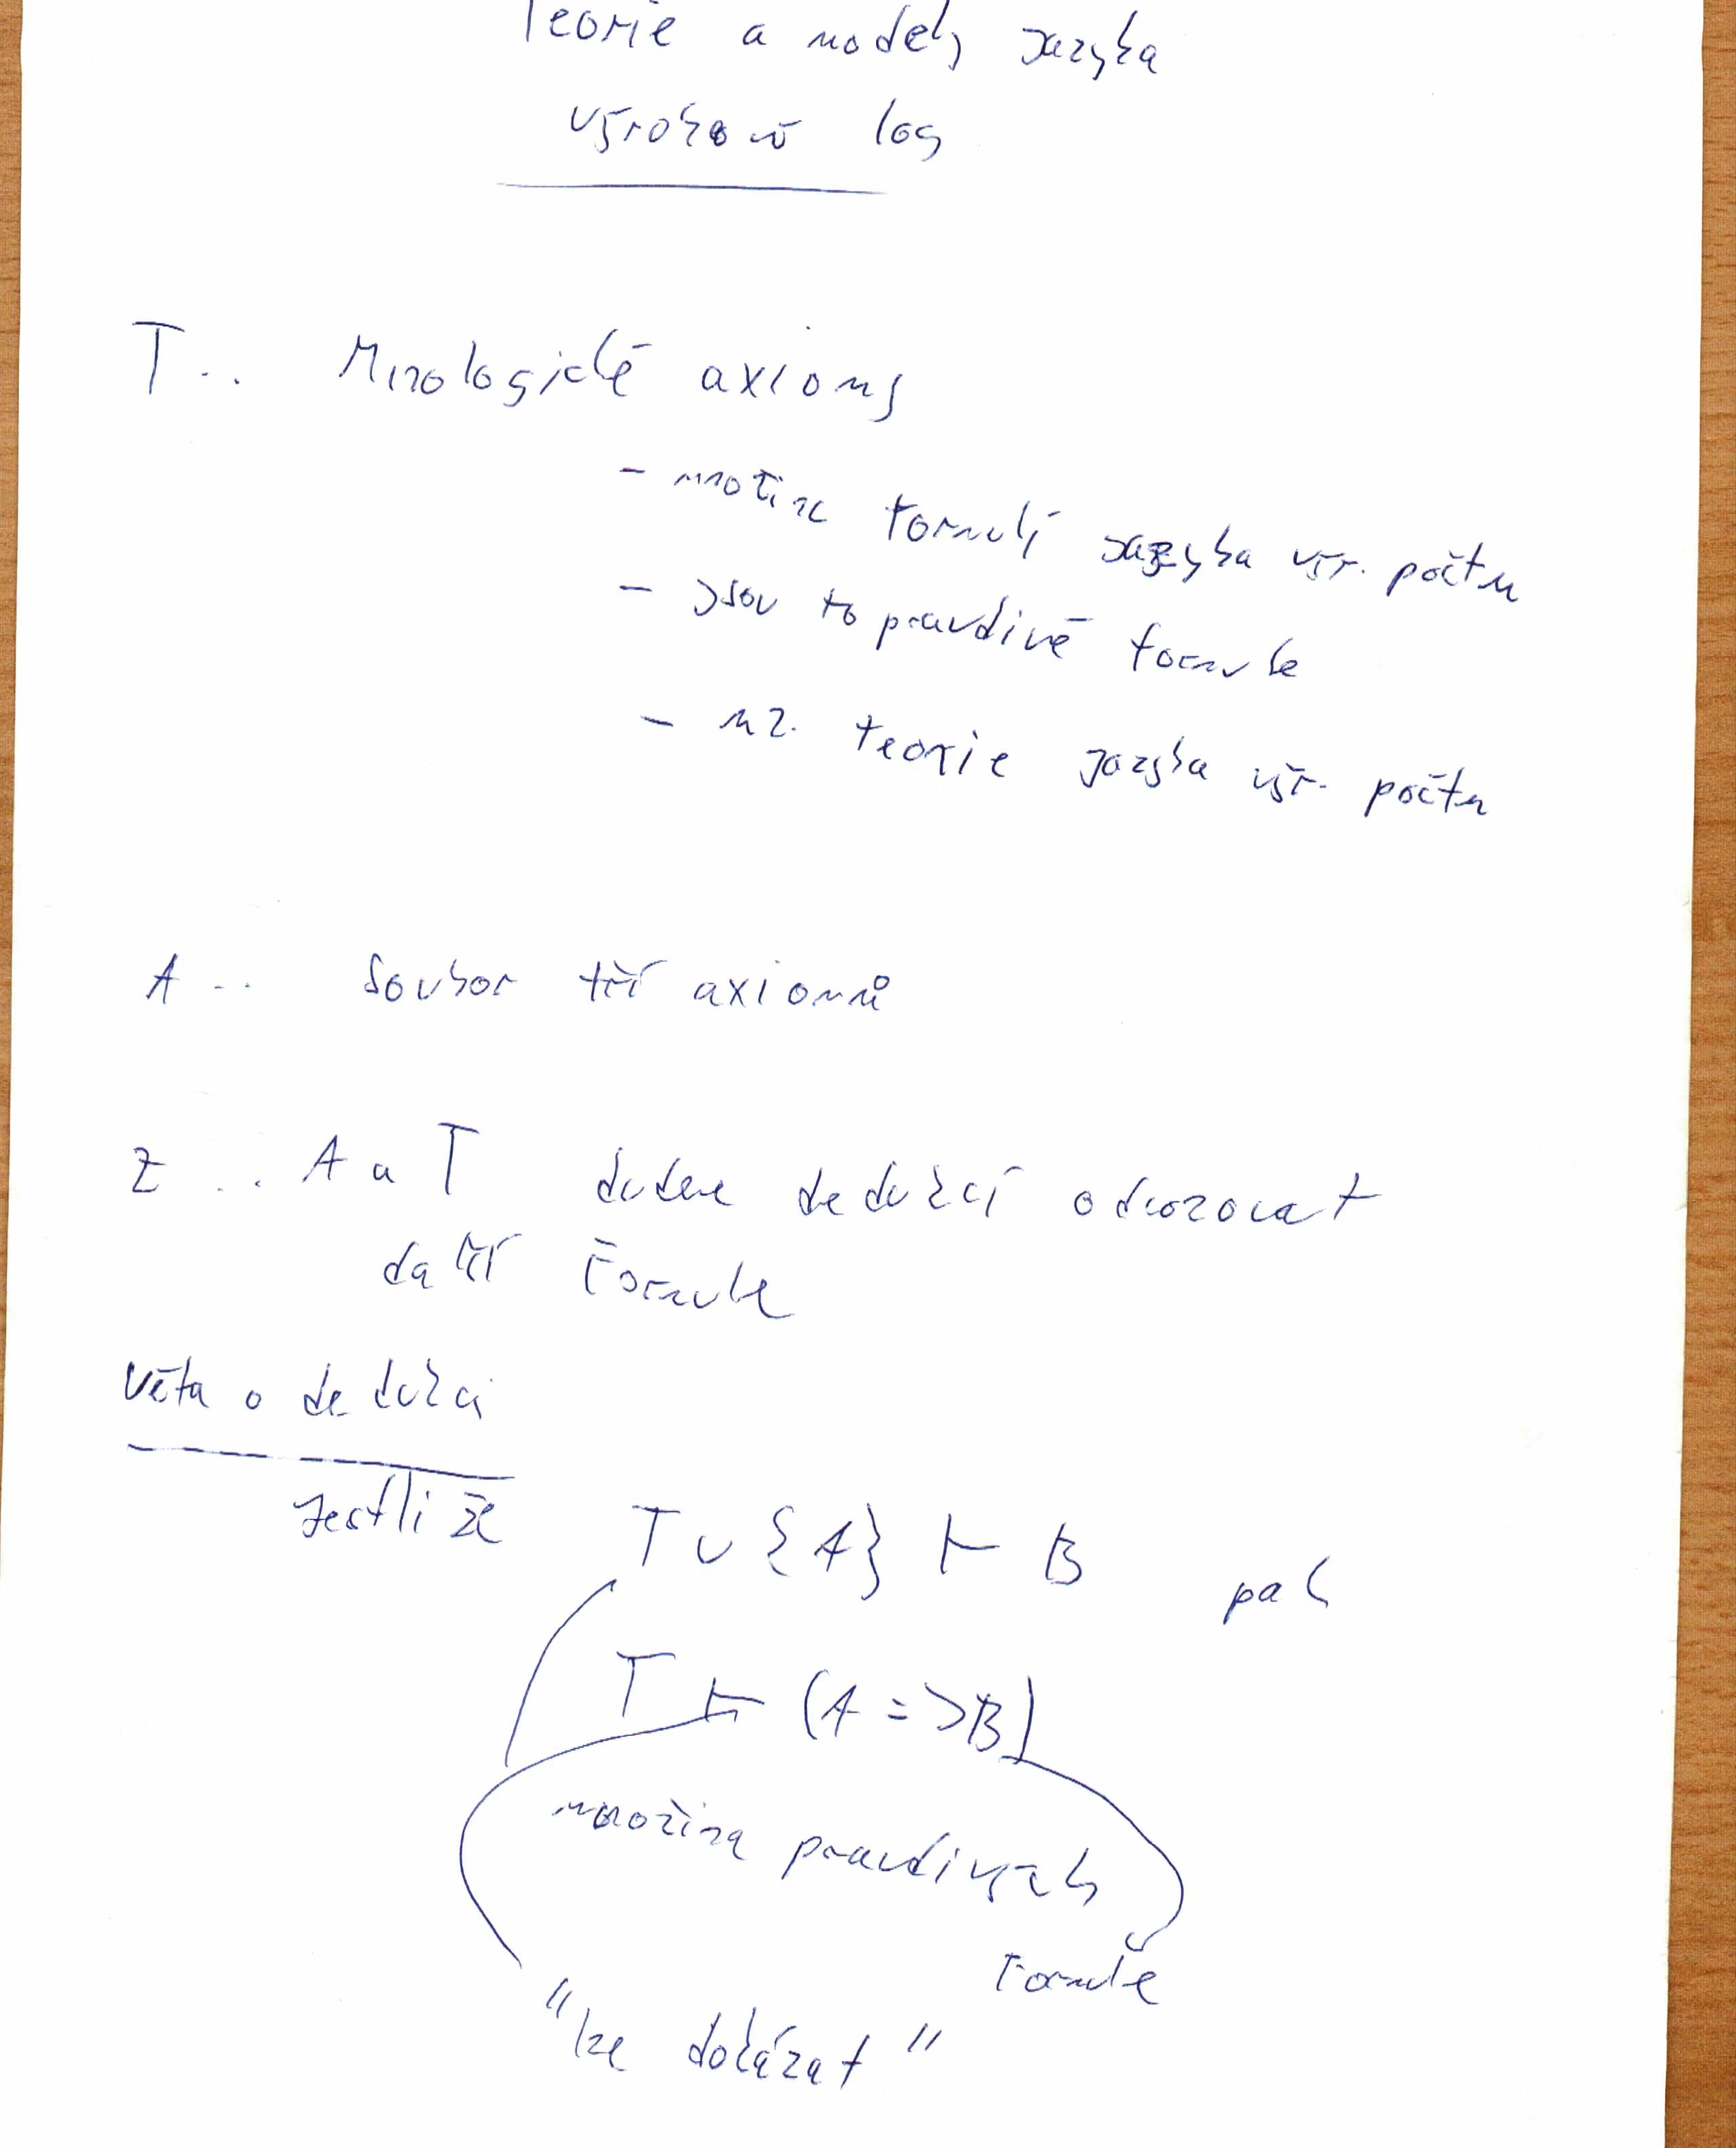 Teorie a modely jazyka
výrokové log
T .. Mimologické axiomy
- množina formulí jazyka výr. počtu
- jsou to pravdivé formule
- nz. teorie jazyka výr. počtu
A .. Soubor tří axiomů
Z .. A a T budeme dedukcí odvozovat
další formule
Věta o dedukci
Jestliže T ∪ {A} ⊢ B pak
T ⊢ (A => B)
množina pravdivých
formule
"lze dokázat"